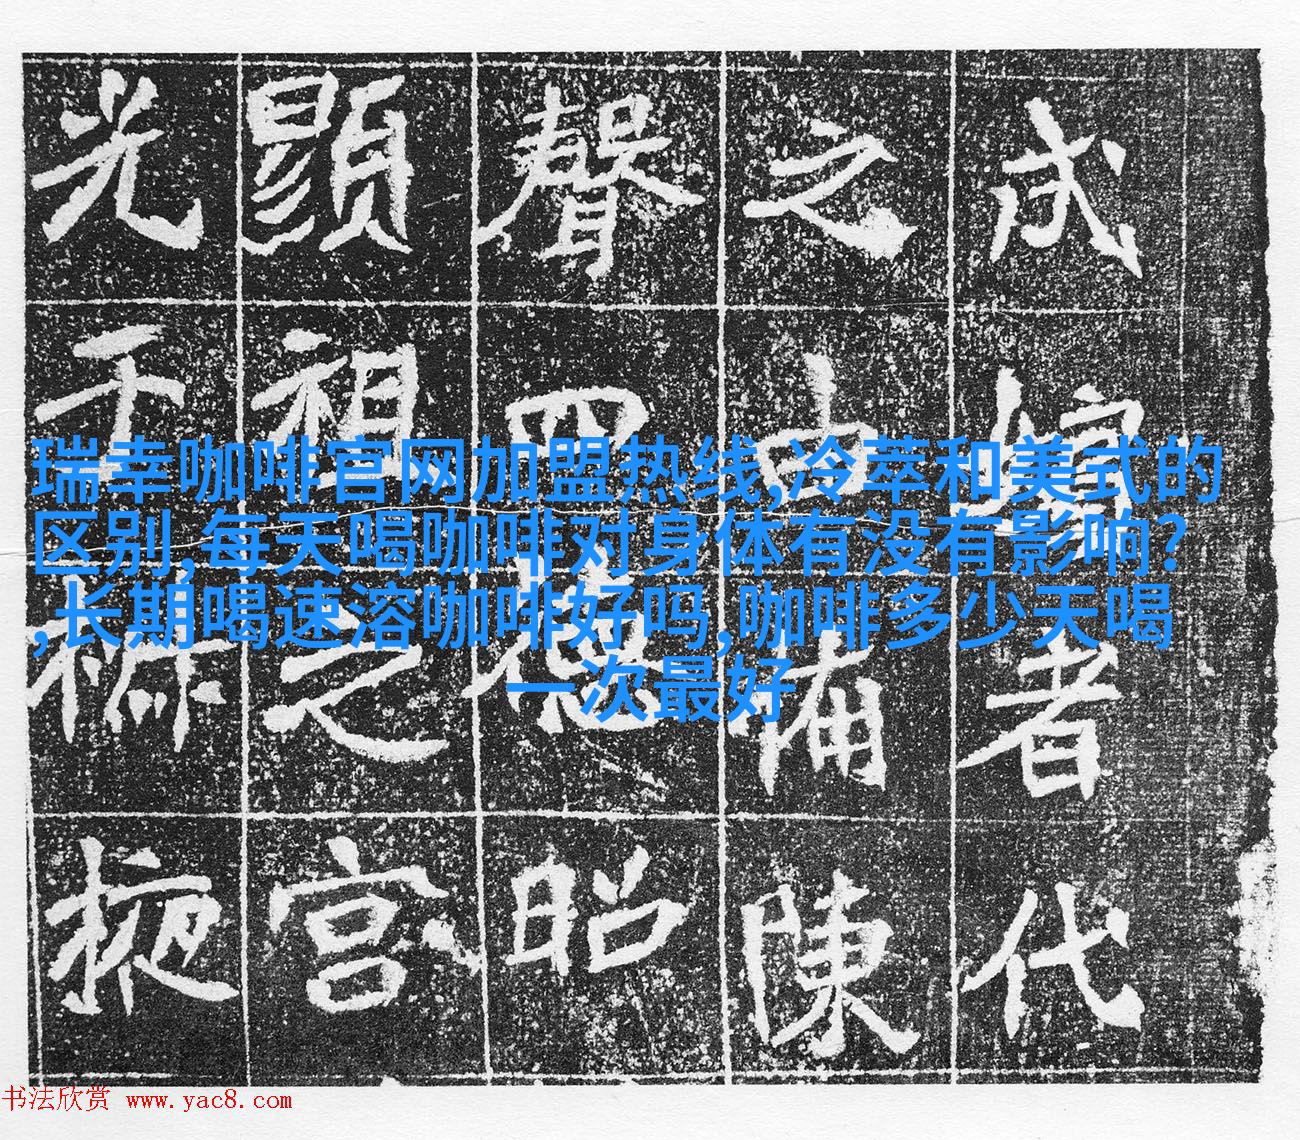 瑞幸咖啡官网加盟热线,冷萃和美式的
区别,每天喝咖啡对身体有没有影响?
,长期喝速溶咖啡好吗,咖啡多少天喝
一次最好
者代
之備陳
聲四德昭
顯祖之宫
光于掖
书法欣赏 www.yac8.com